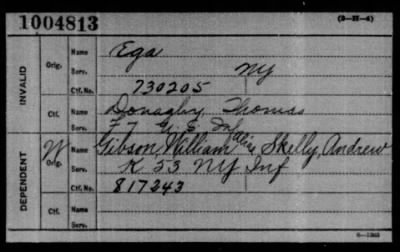 1004813
(3—H—4)
INVALID
Orig.
Name
Ega
Serv.
NY
Ctf. No.
730205
Ctf.
Name
Donagby, Thomas
Serv.
F 7 U.S. Inf
DEPENDENT
W
Orig.
Name
Gibson, William alias Skelly, Andrew
Serv.
K 53 NY Inf
Ctf. No.
817243
Ctf.
Name
Serv.